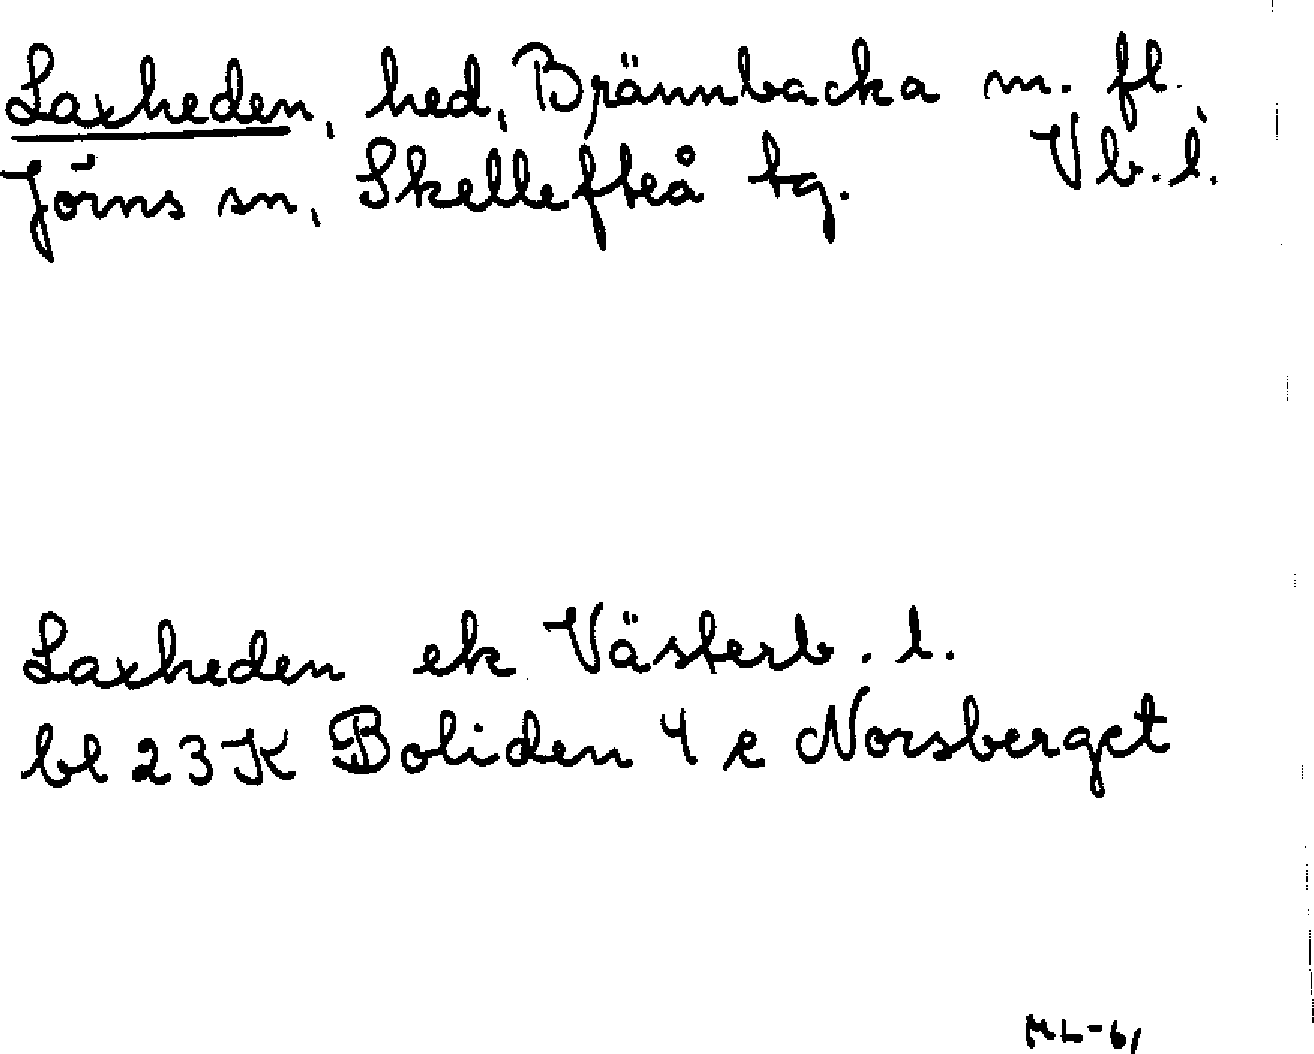 Laxheden, hed, Brännbacka m. fl.
Jörns sn, Skellefteå tg. Vb. l.
Laxheden ek Västerb. l.
bl 23K Boliden 4 e Norsberget
ML-61